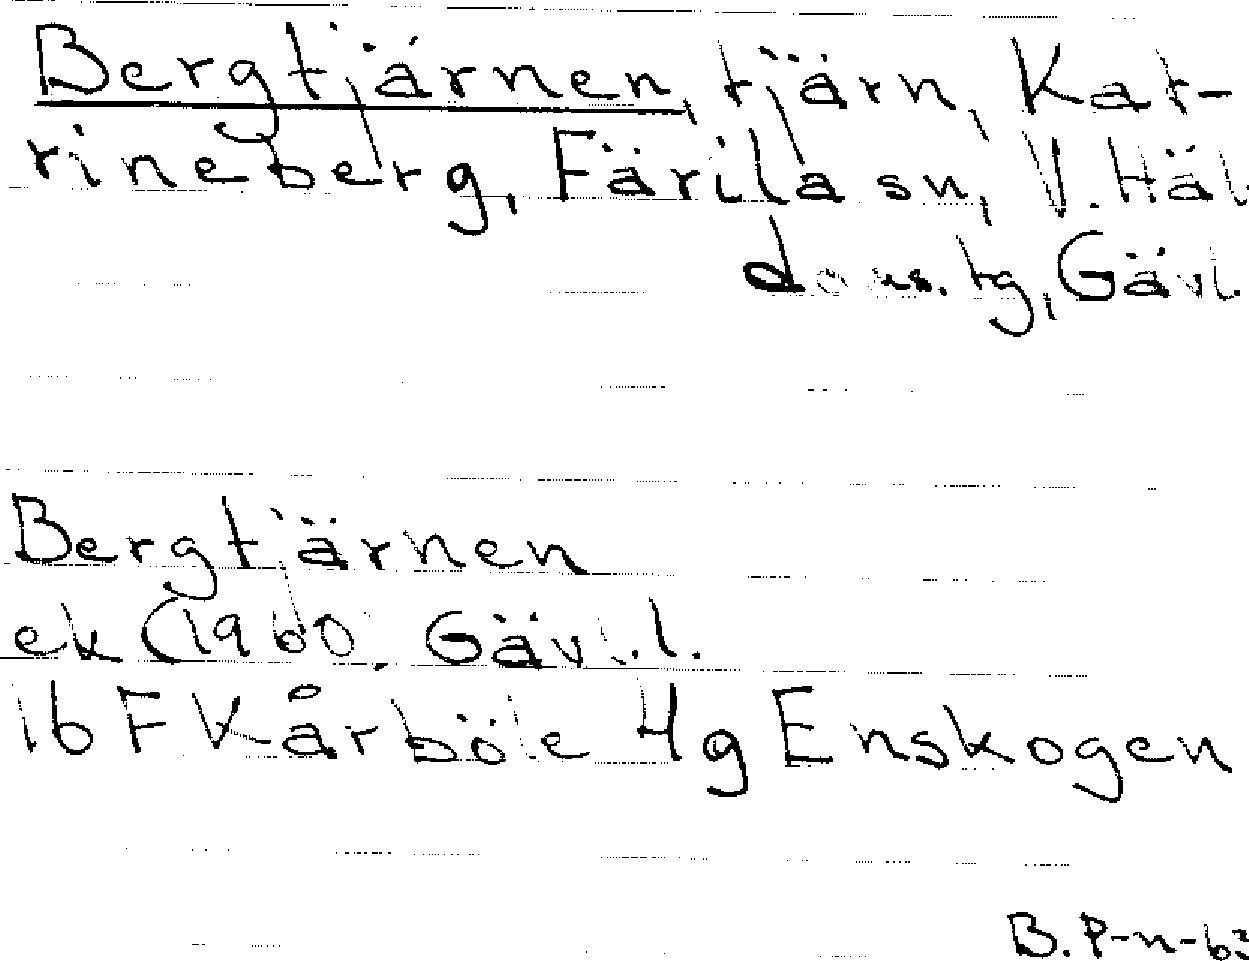 Bergtjärnen, tjärn, Kat-
rineberg, Färila sn, V. Häl
doms. tg, Gävl.
Bergtjärnen
ek (1960. Gävl.l.
16 F Kårböle 4g Enskogen
B. P-n-63